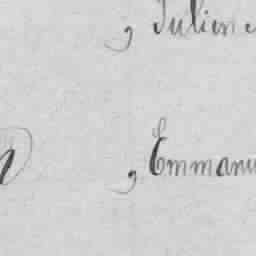 , Julien
, Emmanu